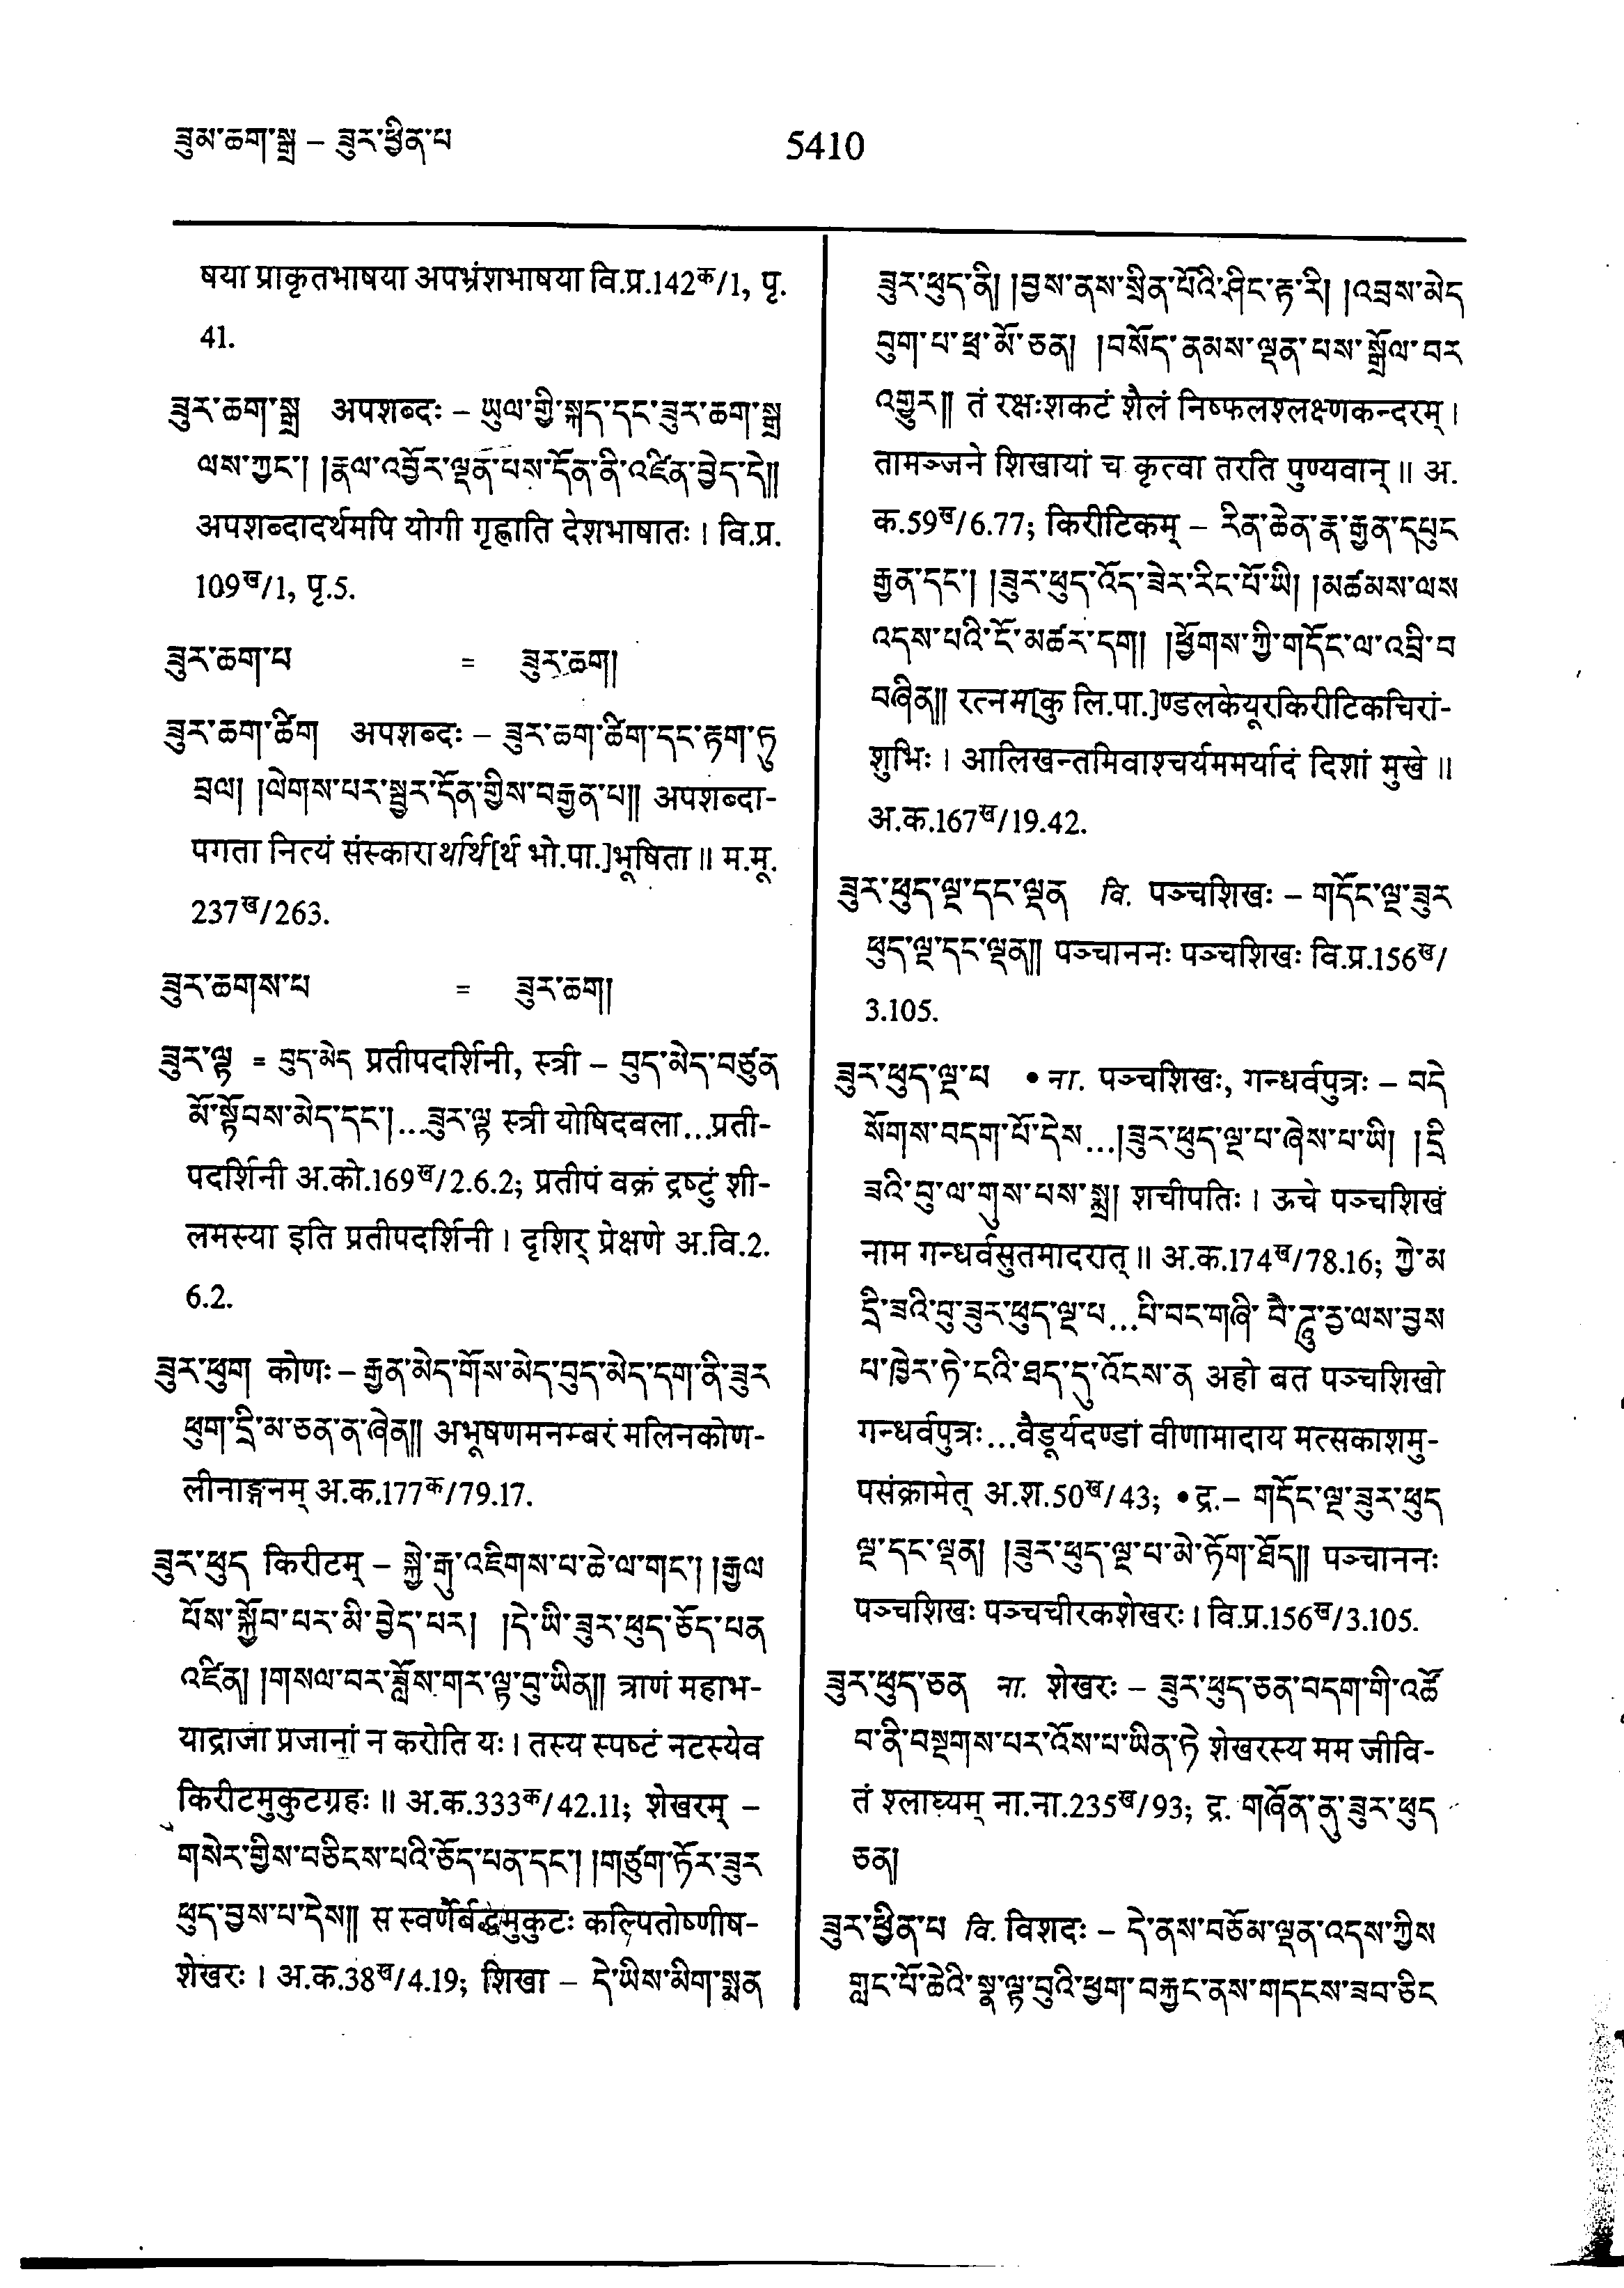 ཟུམ་ཆག་སྒྲ – ཟུར་ཕྱིན་པ
5410
षया प्राकृतभाषया अपभ्रंशभाषया वि.प्र.142क/1, पृ.
41.
ཟུར་ཆག་སྒྲ अपशब्दः – ཡུལ་གྱི་སྐད་དང་ཟུར་ཆག་སྒྲ
ལས་ཀྱང་། །རྣལ་འབྱོར་ལྡན་པས་དོན་ནི་འཛིན་བྱེད་དེ།།
अपशब्दादर्थमपि योगी गृह्णाति देशभाषातः। वि.प्र.
109ख/1, पृ.5.
ཟུར་ཆག་པ = ཟུར་ཆག།
ཟུར་ཆག་ཚིག अपशब्दः – ཟུར་ཆག་ཚིག་དང་རྟག་ཏུ
བྲལ། །ལེགས་པར་སྦྱར་དོན་གྱིས་བརྒྱན་པ།། अपशब्दा-
पगता नित्यं संस्कारार्थार्थि[र्थ भो.पा.]भूषिता॥ म.मू.
237ख/263.
ཟུར་ཆགས་པ = ཟུར་ཆག།
ཟུར་ལྟ = བུད་མེད प्रतीपदर्शिनी, स्त्री – བུད་མེད་བཙུན
མོ་སྟོབས་མེད་དང་།...ཟུར་ལྟ स्त्री योषिदबला...प्रती-
पदर्शिनी अ.को.169ख/2.6.2; प्रतीपं वक्रं द्रष्टुं शी-
लमस्या इति प्रतीपदर्शिनी। दृशिर् प्रेक्षणे अ.वि.2.
6.2.
ཟུར་ཕུག कोणः – རྒྱན་མེད་གོས་མེད་བུད་མེད་དག་ནི་ཟུར
ཕུག་དྲི་མ་ཅན་ན་ཞེན།། अभूषणमनम्बरं मलिनकोण-
लीनाङ्गनम् अ.क.177क/79.17.
ཟུར་ཕུད किरीटम् – སྐྱེ་རྒུ་འཇིགས་པ་ཆེ་ལ་གང་། །རྒྱལ
པོས་སྐྱོབ་པར་མི་བྱེད་པར། །དེ་ཡི་ཟུར་ཕུད་ཅོད་པན
འཛིན། །གསལ་བར་ཟློས་གར་ལྟ་བུ་ཡིན།། त्राणं महाभ-
याद्राजा प्रजानां न करोति यः। तस्य स्पष्टं नटस्येव
किरीटमुकुटग्रहः॥ अ.क.333क/42.11; शेखरम् –
གསེར་གྱིས་བཅིངས་པའི་ཅོད་པན་དང་། །གཙུག་ཏོར་ཟུར
ཕུད་བྱས་པ་དེས།། स स्वर्णैर्बद्धमुकुटः कल्पितोष्णीष-
शेखरः। अ.क.38ख/4.19; शिखा – དེ་ཡིས་མིག་སྨན
ཟུར་ཕུད་ནི། །བྱས་ནས་སྲིན་པོའི་ཤིང་རྟ་རི། །འབྲས་མེད
བུག་པ་ཕྲ་མོ་ཅན། །བསོད་ནམས་ལྡན་པས་སྒྲོལ་བར
འགྱུར།། तं रक्षःशकटं शैलं निष्फलश्लक्ष्णकन्दरम्।
तामञ्जने शिखायां च कृत्वा तरति पुण्यवान्॥ अ.
क.59ख/6.77; किरीटिकम् – རིན་ཆེན་རྣ་རྒྱན་དཔུང
རྒྱན་དང་། །ཟུར་ཕུད་འོད་ཟེར་རིང་པོ་ཡི། །མཚམས་ལས
འདས་པའི་ངོ་མཚར་དག། །ཕྱོགས་ཀྱི་གདོང་ལ་འབྲི་བ
བཞིན།། रत्नम[कु लि.पा.]ण्डलकेयूरकिरीटिकचिरां-
शुभिः। आलिखन्तमिवाश्चर्यममर्यादं दिशां मुखे॥
अ.क.167ख/19.42.
ཟུར་ཕུད་ལྔ་དང་ལྡན वि. पञ्चशिखः – གདོང་ལྔ་ཟུར
ཕུད་ལྔ་དང་ལྡན།། पञ्चाननः पञ्चशिखः वि.प्र.156ख/
3.105.
ཟུར་ཕུད་ལྔ་པ • ना. पञ्चशिखः, गन्धर्वपुत्रः – བདེ
སོགས་བདག་པོ་དེས...།ཟུར་ཕུད་ལྔ་པ་ཞེས་པ་ཡི། །དྲི
ཟའི་བུ་ལ་གུས་པས་སྨྲ། शचीपतिः। ऊचे पञ्चशिखं
नाम गन्धर्वसुतमादरात्॥ अ.क.174ख/78.16; ཀྱེ་མ
དྲི་ཟའི་བུ་ཟུར་ཕུད་ལྔ་པ...པི་བང་གཞི་བཻ་ཌཱུ་རྱ་ལས་བྱས
པ་ཁྱེར་ཏེ་ངའི་ཐད་དུ་འོངས་ན अहो बत पञ्चशिखो
गन्धर्वपुत्रः...वैडूर्यदण्डां वीणामादाय मत्सकाशमु-
पसंक्रामेत् अ.श.50ख/43; • द्र.– གདོང་ལྔ་ཟུར་ཕུད
ལྔ་དང་ལྡན། །ཟུར་ཕུད་ལྔ་པ་མེ་ཏོག་ཐོད།། पञ्चाननः
पञ्चशिखः पञ्चचीरकशेखरः। वि.प्र.156ख/3.105.
ཟུར་ཕུད་ཅན ना. शेखरः – ཟུར་ཕུད་ཅན་བདག་གི་འཚོ
བ་ནི་བསྔགས་པར་འོས་པ་ཡིན་ཏེ शेखरस्य मम जीवि-
तं श्लाघ्यम् ना.ना.235ख/93; द्र. གཞོན་ནུ་ཟུར་ཕུད
ཅན།
ཟུར་ཕྱིན་པ वि. विशदः – དེ་ནས་བཅོམ་ལྡན་འདས་ཀྱིས
གླང་པོ་ཆེའི་སྣ་ལྟ་བུའི་ཕྱག་བརྐྱང་ནས་གདངས་ཟབ་ཅིང